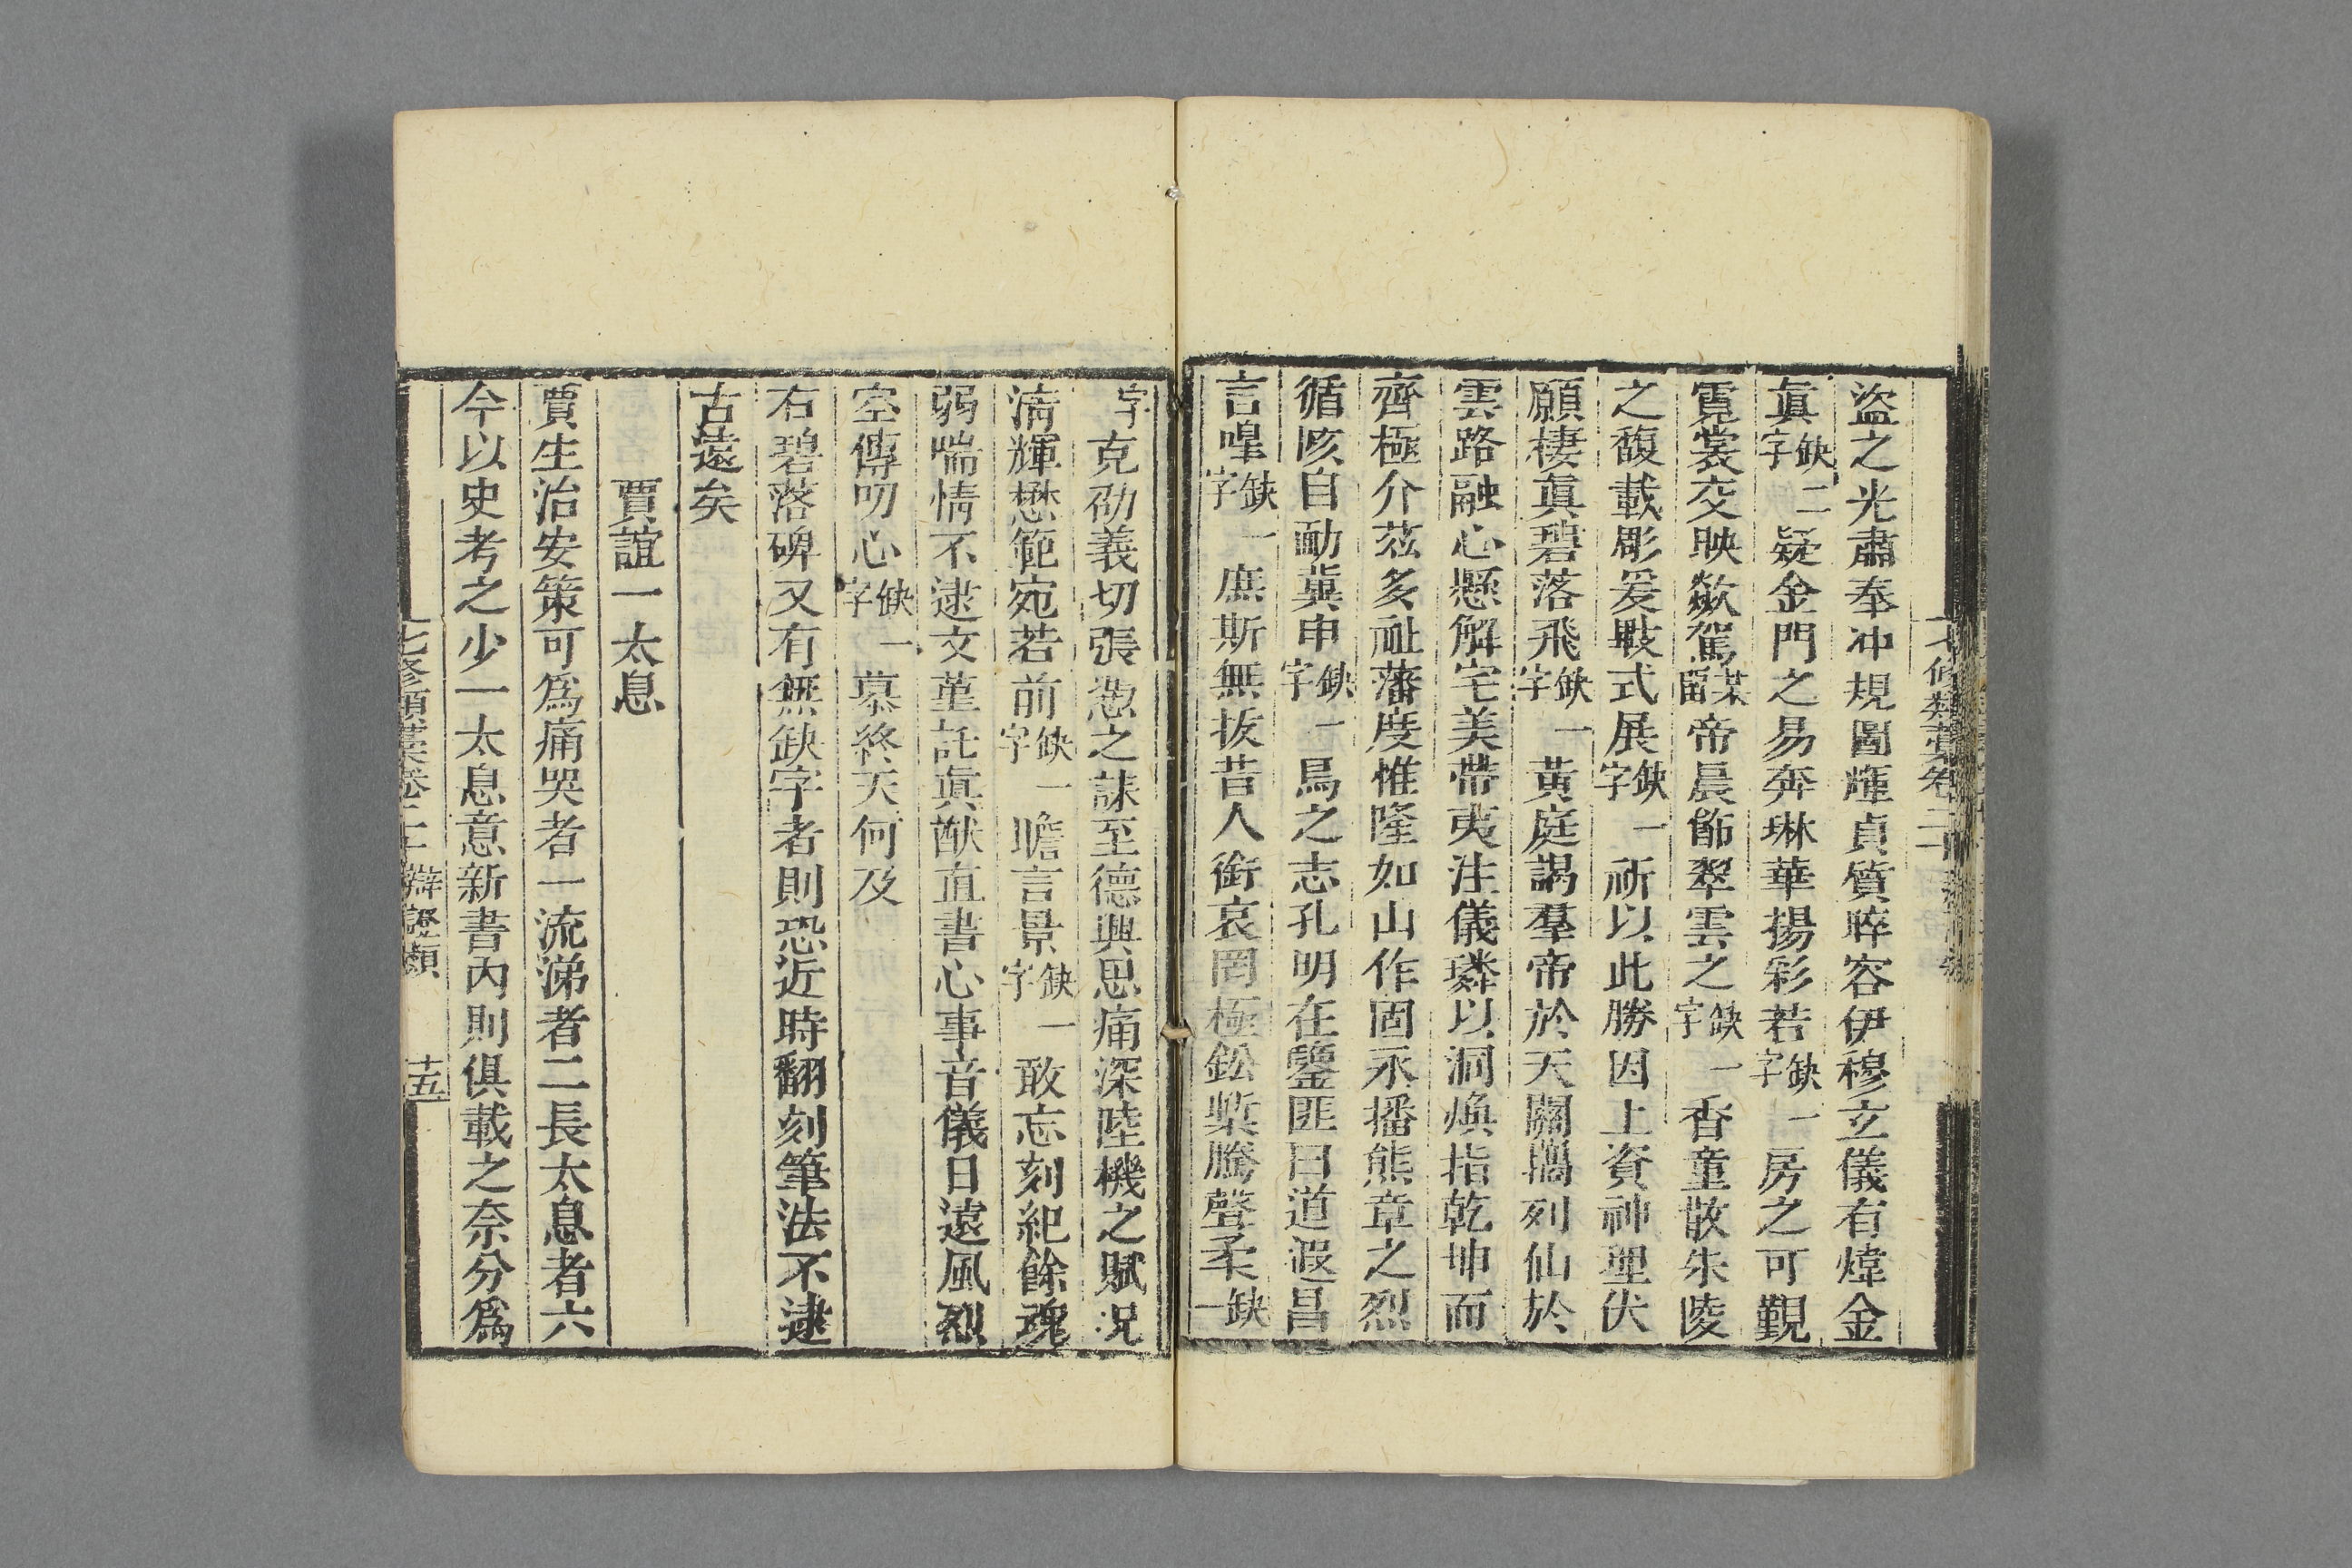 盜之光肅奉冲規圖輝貞質睟容伊穆玄儀有煒金
眞缺二字疑金門之易奔琳華揚彩若缺一字房之可覲
霓裳交映歘駕某畱帝晨飾翠雲之缺一字香童散朱陵
之馥載彫爰戢式展缺一字祈以此勝因上資神理伏
願棲眞碧落飛缺一字黃庭謁羣帝於天關攜列仙於
雲路融心懸解宅美帶夷注儀璘以洞煥指乾坤而
齊極介茲多祉藩度惟隆如山作固永播熊章之烈
循陔自勵冀申缺一字鳥之志孔明在鑒匪曰道遐昌
言嘷缺一字庶斯無拔昔人銜哀罔極鉛槧騰聲柔缺一
字克劭義切張憑之誄至德興思痛深陸機之賦況
淸輝懋範宛若前缺一字瞻言景缺一字敢忘刻紀餘魂
弱喘情不逮文堇託眞猷直書心事音儀日遠風烈
空傳叨心缺一字慕終天何及
右碧落碑又有無缺字者則恐近時翻刻筆法不逮
古遠矣
賈誼一太息
賈生治安策可爲痛哭者一流涕者二長太息者六
今以史考之少一太息意新書內則俱載之奈分爲
七修類藁卷二十 辯證類 十五